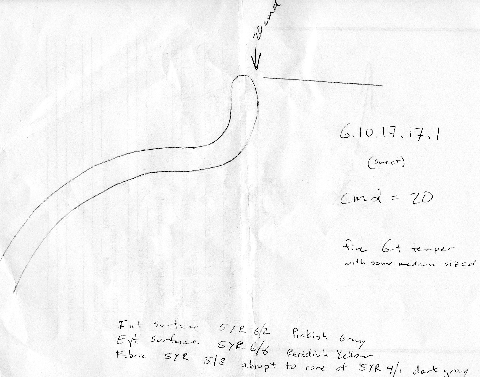 6.10.17.17.1
cmd = 20
fine Grit temper
with some medium sized
Int surface 5YR 6/2 Pinkish Gray
Ext surface 5YR 6/6 Reddish Yellow
Fabric 5YR 5/8 abrupt to core of 5YR 4/1 dark gray